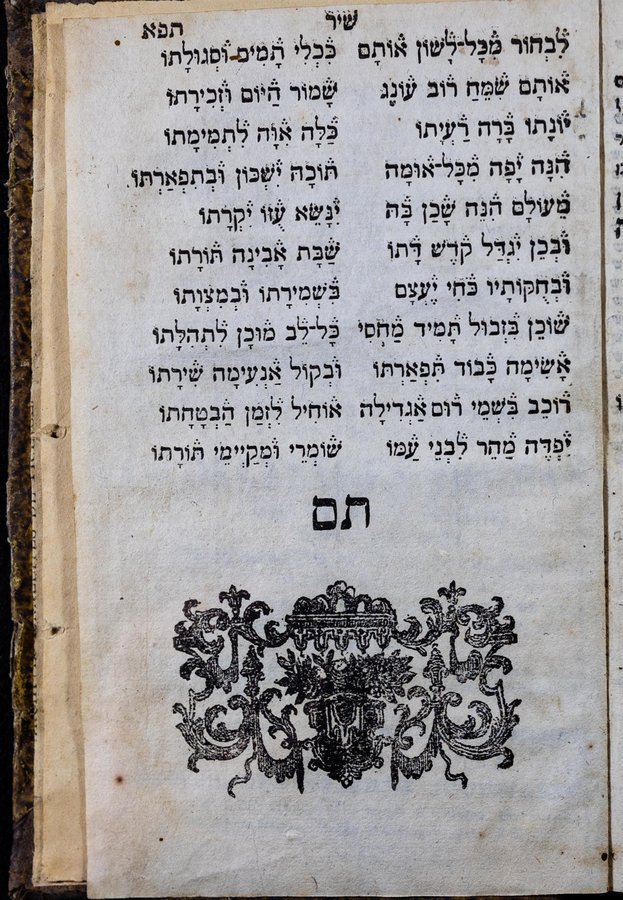 שיר תפא
לִבְחוֹר מִכָּל-לָשׁוֹן אוֹתָם כִּכְלִי תָמִים וּסְגוּלָתוֹ
אוֹתָם שִׂמַּח רוֹב עוֹנֶג שָׁמוֹר הַיּוֹם וּזְכִירָתוֹ
יוֹנָתוֹ בָּרָה רַעְיָתוֹ כַּלָּה אִוָּה לִתְמִימָתוֹ
הִנָּה יָפָה מִכָּל-אוּמָה תּוֹכָהּ יִשְׁכּוֹן וּבְתִפְאַרְתּוֹ
מֵעוֹלָם הִנֵּה שָׁכַן בָּהּ יִנָּשֵׂא עֻזּוֹ יִקְרָתוֹ
וּבְכֵן יִגְדַּל קֹדֶשׁ דָּתוֹ שַׁבָּת אָבִינָה תּוֹרָתוֹ
וּבְחֻקּוֹתָיו כֹּחִי יֶעְצַם בִּשְׁמִירָתוֹ וּבְמִצְוָתוֹ
שׁוֹכֵן בִּזְבוּל תָּמִיד מַחְסִי כָּל-לֵב מוּכָן לִתְהִלָּתוֹ
אָשִׂימָה כְּבוֹד תִּפְאַרְתּוֹ וּבְקוֹל אַנְעִימָה שִׁירָתוֹ
רוֹכֵב בִּשְׁמֵי רוּם אַגְדִּילָה אוֹחִיל לִזְמַן הַבְטָחָתוֹ
יִפְדֶּה מַהֵר לִבְנֵי עַמּוֹ שׁוֹמְרֵי וּמְקַיְימֵי תּוֹרָתוֹ
תם